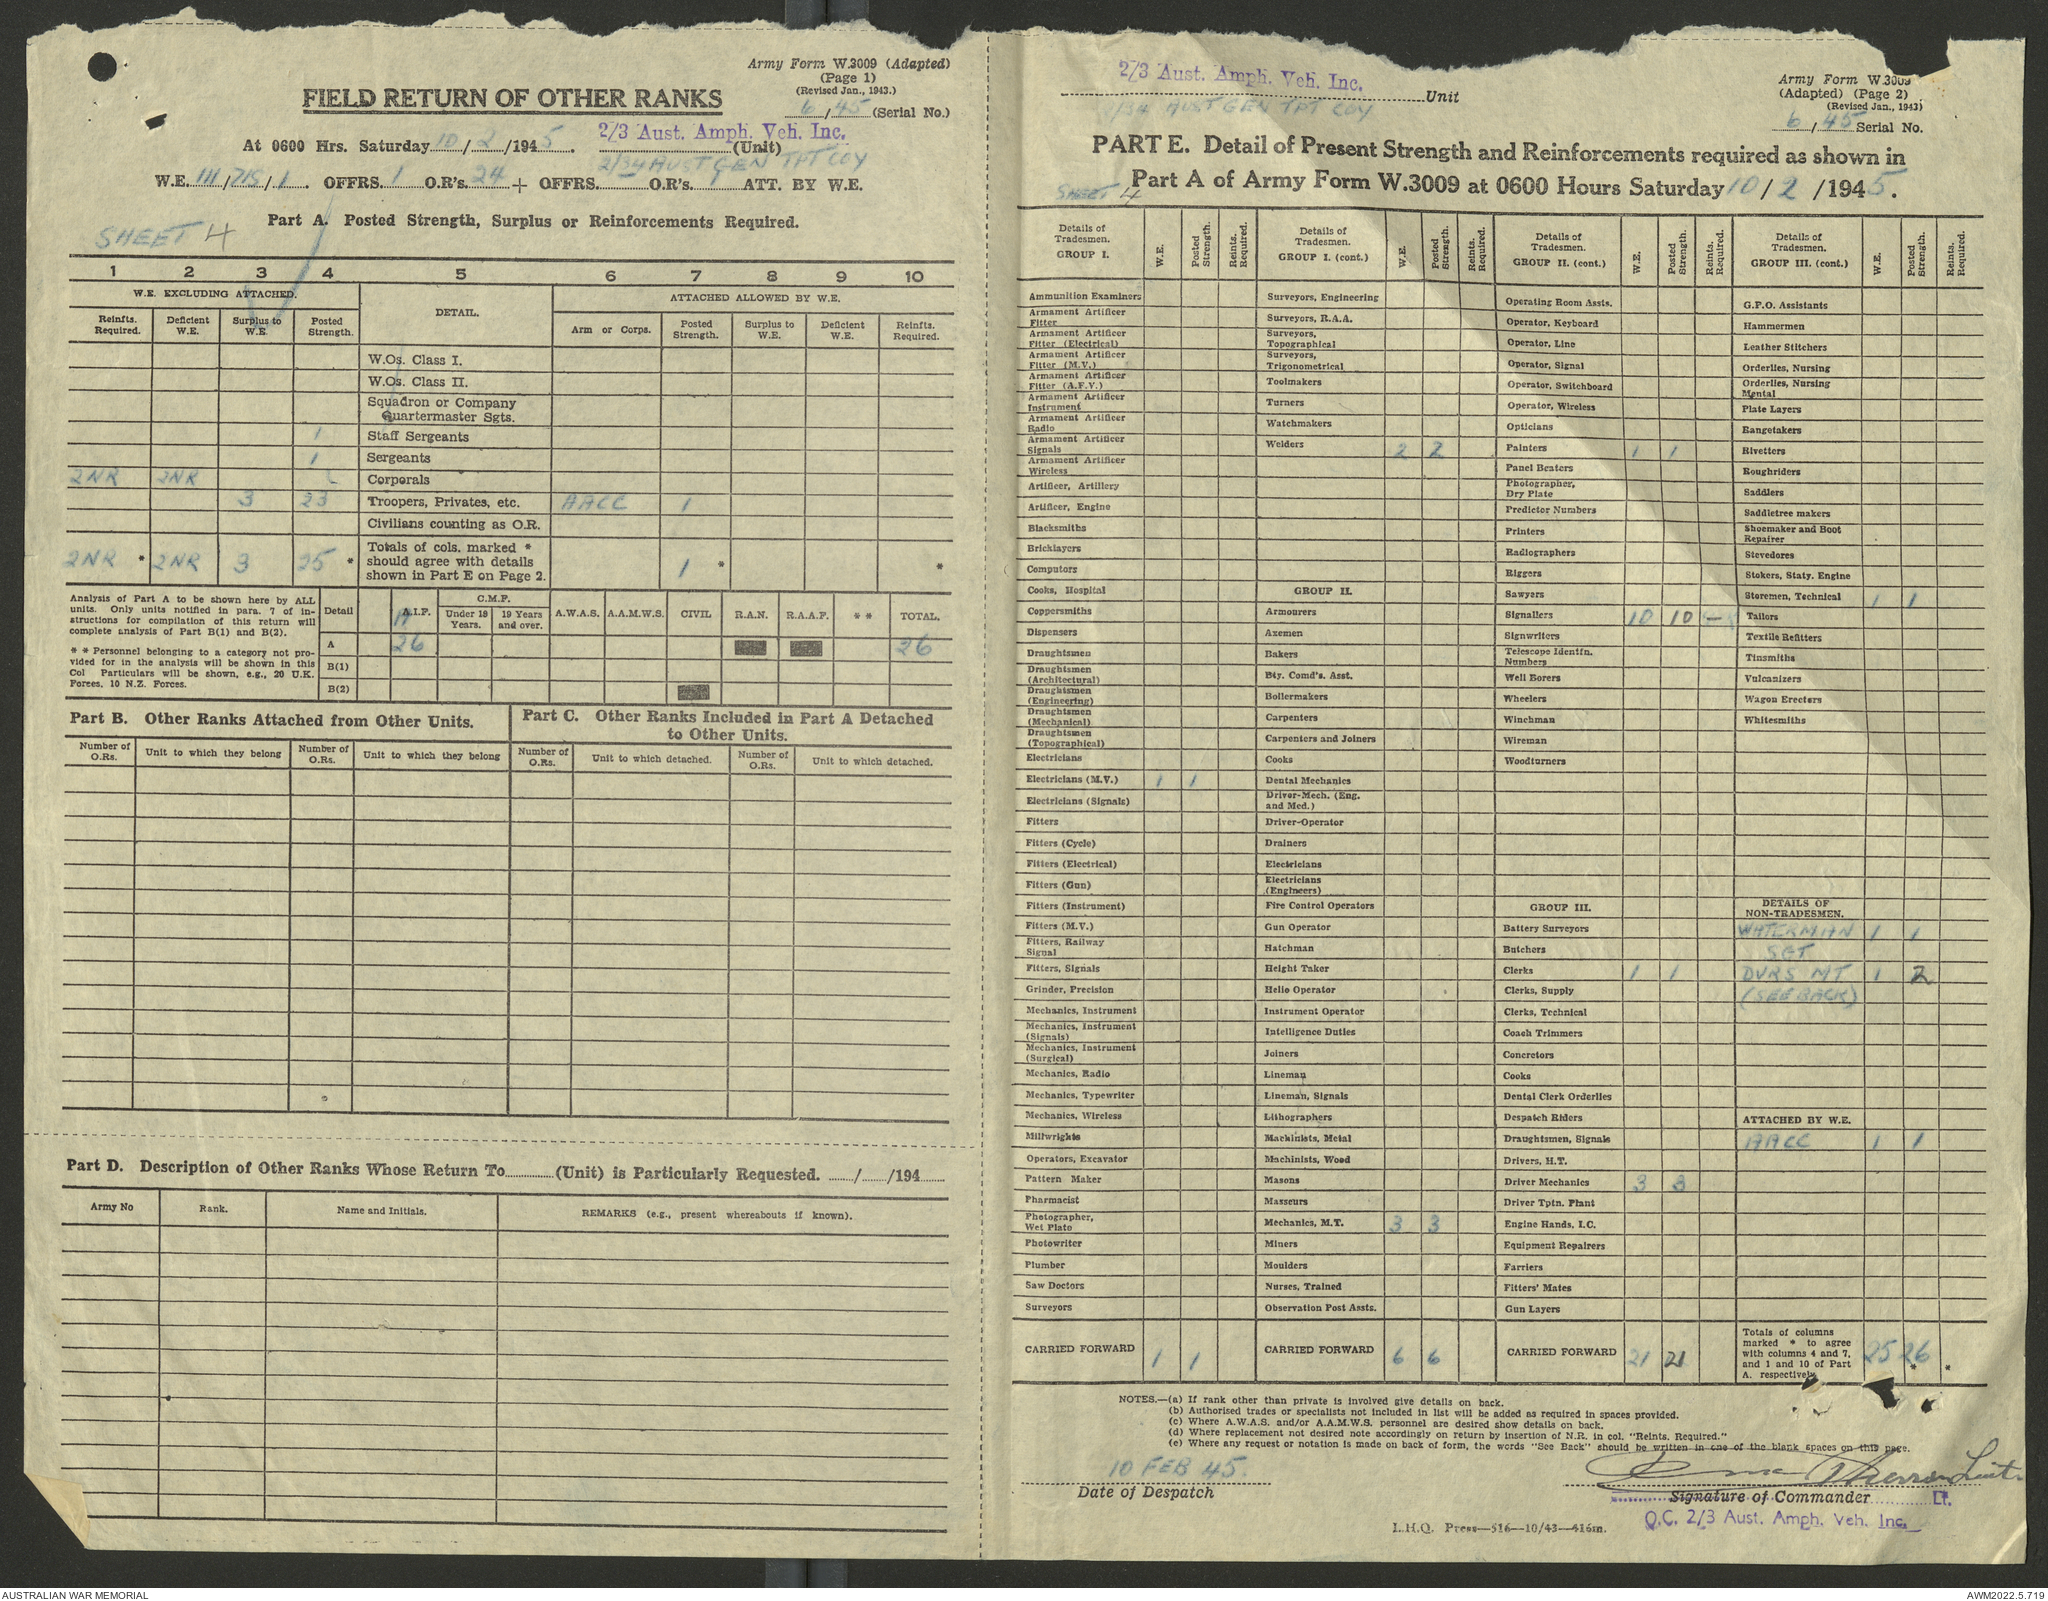 Army Form W.3009 (Adapted)
(Page 1)
(Revised Jan., 1943.)
6/45 (Serial No.)
FIELD RETURN OF OTHER RANKS
At 0600 Hrs. Saturday 10/2/1945. 2/3 Aust. Amph. Veh. Inc. (Unit)
2/34 AUST GEN TPT COY
W.E. III/715/1. OFFRS. 1 O.R's. 24 + OFFRS. O.R's. 1 ATT. BY W.E.
Part A. Posted Strength, Surplus or Reinforcements Required.
SHEET 4
1 2 3 4 5 6 7 8 9 10
W.E. EXCLUDING ATTACHED. DETAIL. ATTACHED ALLOWED BY W.E.
Reinfts. Required. Deficient W.E. Surplus to W.E. Posted Strength. Arm or Corps. Posted Strength. Surplus to W.E. Deficient W.E. Reinfts. Required.
W.Os. Class I.
W.Os. Class II.
Squadron or Company
Quartermaster Sgts.
1 Staff Sergeants
1 Sergeants
2NR 2NR Corporals
3 23 Troopers, Privates, etc. AACC 1
Civilians counting as O.R.
2NR * 2NR 3 25 * Totals of cols. marked * should agree with details shown in Part E on Page 2. 1 * *
Analysis of Part A to be shown here by ALL
units. Only units notified in para. 7 of in-
structions for compilation of this return will
complete analysis of Part B(1) and B(2).
* * Personnel belonging to a category not pro-
vided for in the analysis will be shown in this
Col Particulars will be shown, e.g., 20 U.K.
Forces, 10 N.Z. Forces.
Detail A.I.F. C.M.F. Under 19 Years. 19 Years and over. A.W.A.S. A.A.M.W.S. CIVIL R.A.N. R.A.A.F. * * TOTAL.
A 26 26
B(1)
B(2)
Part B. Other Ranks Attached from Other Units.
Number of O.Rs. Unit to which they belong Number of O.Rs. Unit to which they belong
Part C. Other Ranks Included in Part A Detached
to Other Units.
Number of O.Rs. Unit to which detached. Number of O.Rs. Unit to which detached.
Part D. Description of Other Ranks Whose Return To (Unit) is Particularly Requested. / /194
Army No Rank. Name and Initials. REMARKS (e.g., present whereabouts if known).
2/3 Aust. Amph. Veh. Inc. Unit
2/34 AUST GEN TPT COY
Army Form W.3009
(Adapted) (Page 2)
(Revised Jan., 1943)
6/45 Serial No.
PART E. Detail of Present Strength and Reinforcements required as shown in
Part A of Army Form W.3009 at 0600 Hours Saturday 10/2/1945.
SHEET 4
Details of Tradesmen. GROUP I. W.E. Posted Strength. Reints. Required.
Ammunition Examiners
Armament Artificer Fitter
Armament Artificer Fitter (Electrical)
Armament Artificer Fitter (M.V.)
Armament Artificer Fitter (A.F.V.)
Armament Artificer Instrument
Armament Artificer Radio
Armament Artificer Signals
Armament Artificer Wireless
Artificer, Artillery
Artificer, Engine
Blacksmiths
Bricklayers
Computors
Cooks, Hospital
Coppersmiths
Dispensers
Draughtsmen
Draughtsmen (Architectural)
Draughtsmen (Engineering)
Draughtsmen (Mechanical)
Draughtsmen (Topographical)
Electricians
Electricians (M.V.) 1 1
Electricians (Signals)
Fitters
Fitters (Cycle)
Fitters (Electrical)
Fitters (Gun)
Fitters (Instrument)
Fitters (M.V.)
Fitters, Railway Signal
Fitters, Signals
Grinder, Precision
Mechanics, Instrument
Mechanics, Instrument (Signals)
Mechanics, Instrument (Surgical)
Mechanics, Radio
Mechanics, Typewriter
Mechanics, Wireless
Millwrights
Operators, Excavator
Pattern Maker
Pharmacist
Photographer, Wet Plate
Photowriter
Plumber
Saw Doctors
Surveyors
CARRIED FORWARD 1 1
Details of Tradesmen. GROUP I. (cont.) W.E. Posted Strength. Reints. Required.
Surveyors, Engineering
Surveyors, R.A.A.
Surveyors, Topographical
Surveyors, Trigonometrical
Toolmakers
Turners
Watchmakers
Welders 2 2
GROUP II.
Armourers
Axemen
Bakers
Bty. Comd's. Asst.
Boilermakers
Carpenters
Carpenters and Joiners
Cooks
Dental Mechanics
Driver-Mech. (Eng. and Med.)
Driver-Operator
Drainers
Electricians
Electricians (Engineers)
Fire Control Operators
Gun Operator
Hatchman
Height Taker
Helio Operator
Instrument Operator
Intelligence Duties
Joiners
Lineman
Lineman, Signals
Lithographers
Machinists, Metal
Machinists, Wood
Masons
Masseurs
Mechanics, M.T. 3 3
Miners
Moulders
Nurses, Trained
Observation Post Assts.
CARRIED FORWARD 6 6
Details of Tradesmen. GROUP II. (cont.) W.E. Posted Strength. Reints. Required.
Operating Room Assts.
Operator, Keyboard
Operator, Line
Operator, Signal
Operator, Switchboard
Operator, Wireless
Opticians
Painters 1 1
Panel Beaters
Photographer, Dry Plate
Predictor Numbers
Printers
Radiographers
Riggers
Sawyers
Signallers 10 10
Signwriters
Telescope Identfn. Numbers
Well Borers
Wheelers
Winchman
Wireman
Woodturners
GROUP III.
Battery Surveyors
Butchers
Clerks 1 1
Clerks, Supply
Clerks, Technical
Coach Trimmers
Concretors
Cooks
Dental Clerk Orderlies
Despatch Riders
Draughtsmen, Signals
Drivers, H.T.
Driver Mechanics 3 3
Driver Tptn. Plant
Engine Hands, I.C.
Equipment Repairers
Farriers
Fitters' Mates
Gun Layers
CARRIED FORWARD 21 21
Details of Tradesmen. GROUP III. (cont.) W.E. Posted Strength. Reints. Required.
G.P.O. Assistants
Hammermen
Leather Stitchers
Orderlies, Nursing
Orderlies, Nursing Mental
Plate Layers
Rangetakers
Rivetters
Roughriders
Saddlers
Saddletree makers
Shoemaker and Boot Repairer
Stevedores
Stokers, Staty. Engine
Storemen, Technical 1 1
Tailors
Textile Refitters
Tinsmiths
Vulcanizers
Wagon Erectors
Whitesmiths
DETAILS OF NON-TRADESMEN.
WATERMAN 1 1
SGT
DVRS MT 1 2
(SEE BACK)
ATTACHED BY W.E.
AACC 1 1
Totals of columns marked * to agree with columns 4 and 7, and 1 and 10 of Part A. respectively 25 26 * *
NOTES.—(a) If rank other than private is involved give details on back.
(b) Authorised trades or specialists not included in list will be added as required in spaces provided.
(c) Where A.W.A.S. and/or A.A.M.W.S. personnel are desired show details on back.
(d) Where replacement not desired note accordingly on return by insertion of N.R. in col. "Reints. Required."
(e) Where any request or notation is made on back of form, the words "See Back" should be written in one of the blank spaces on this page.
10 FEB 45.
Date of Despatch
Lieut.
Signature of Commander Lt.
O.C. 2/3 Aust. Amph. Veh. Inc.
L.H.Q. Press—516—10/43—416m.
AUSTRALIAN WAR MEMORIAL
AWM2022.5.719